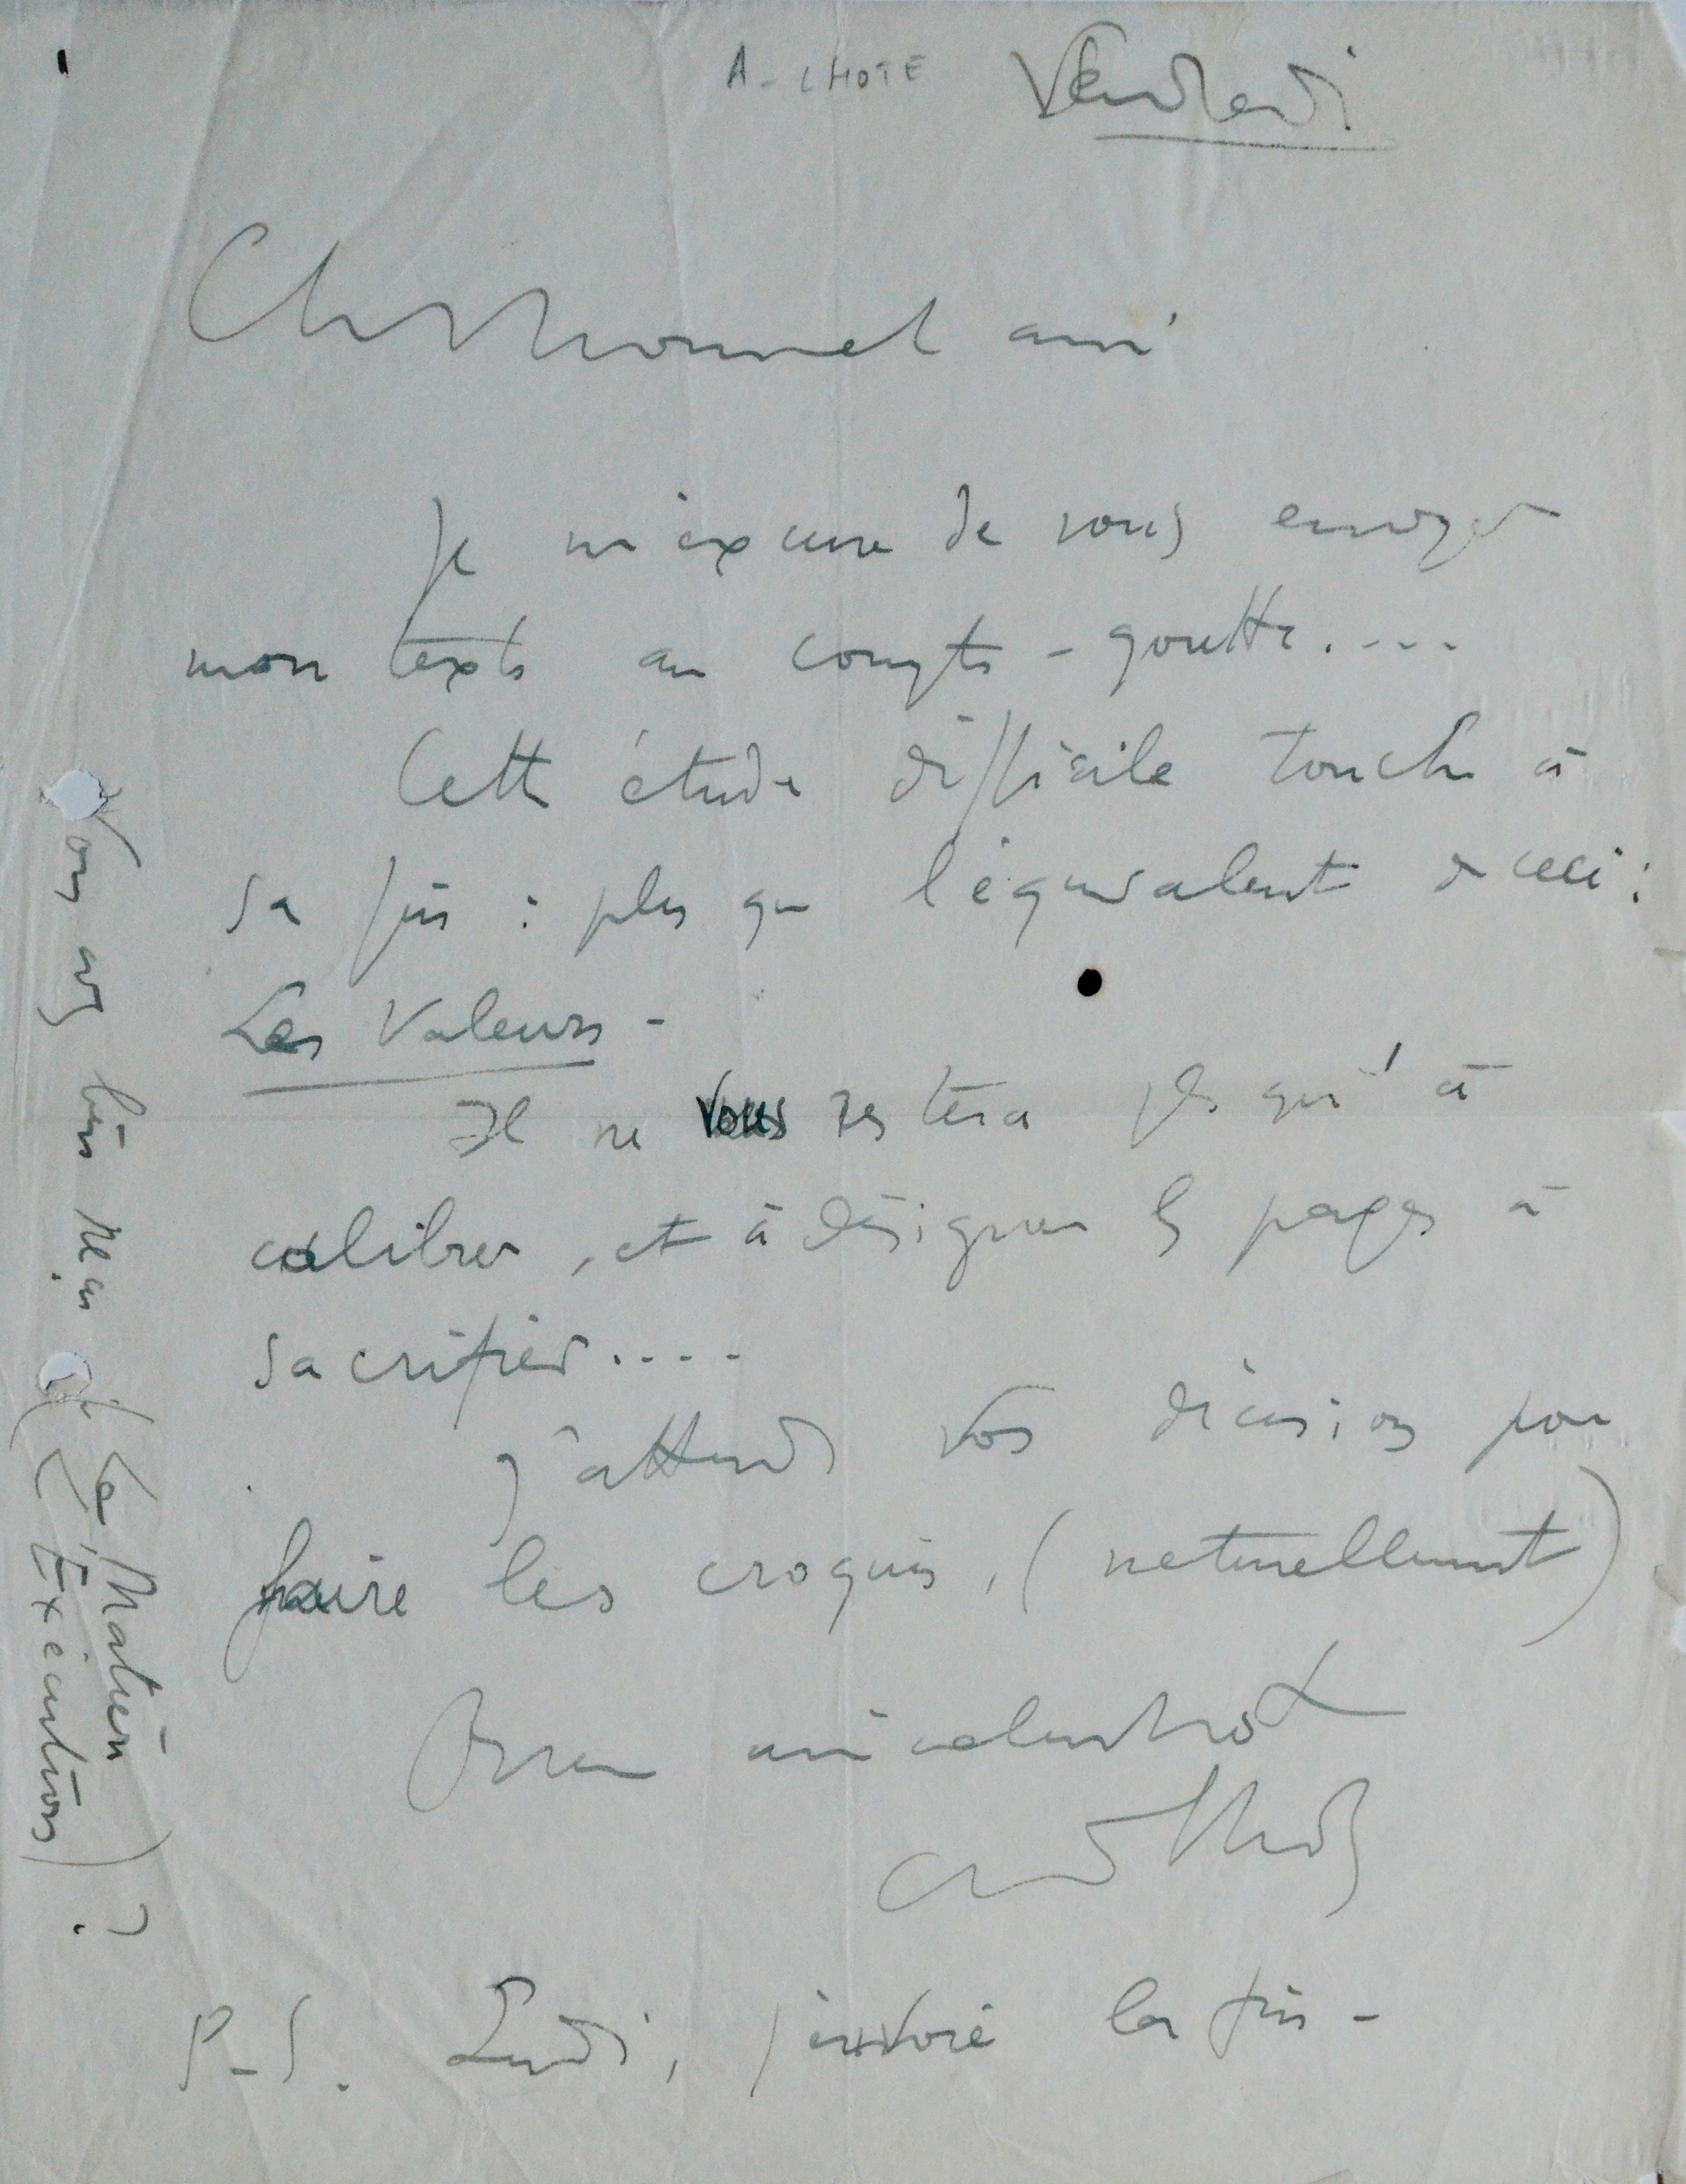 A. LHOTE Vendredi
Cher Monsieur et ami
Je m'excuse de vous envoyer
mon texte au compte-goutte....
Cette étude difficile touche à
sa fin : plus que l'équivalent de ceci :
Les Valeurs -
Il ne vous restera plus qu'à
calibrer, et à désigner les pages à
sacrifier....
J'attends vos décisions pour
faire les croquis, (naturellement)
Bien amicalement
André Lhote
P-S. Lundi, j'envoie la fin -
Vous avez bien reçu
(La Matière
(L'Exécution) ?